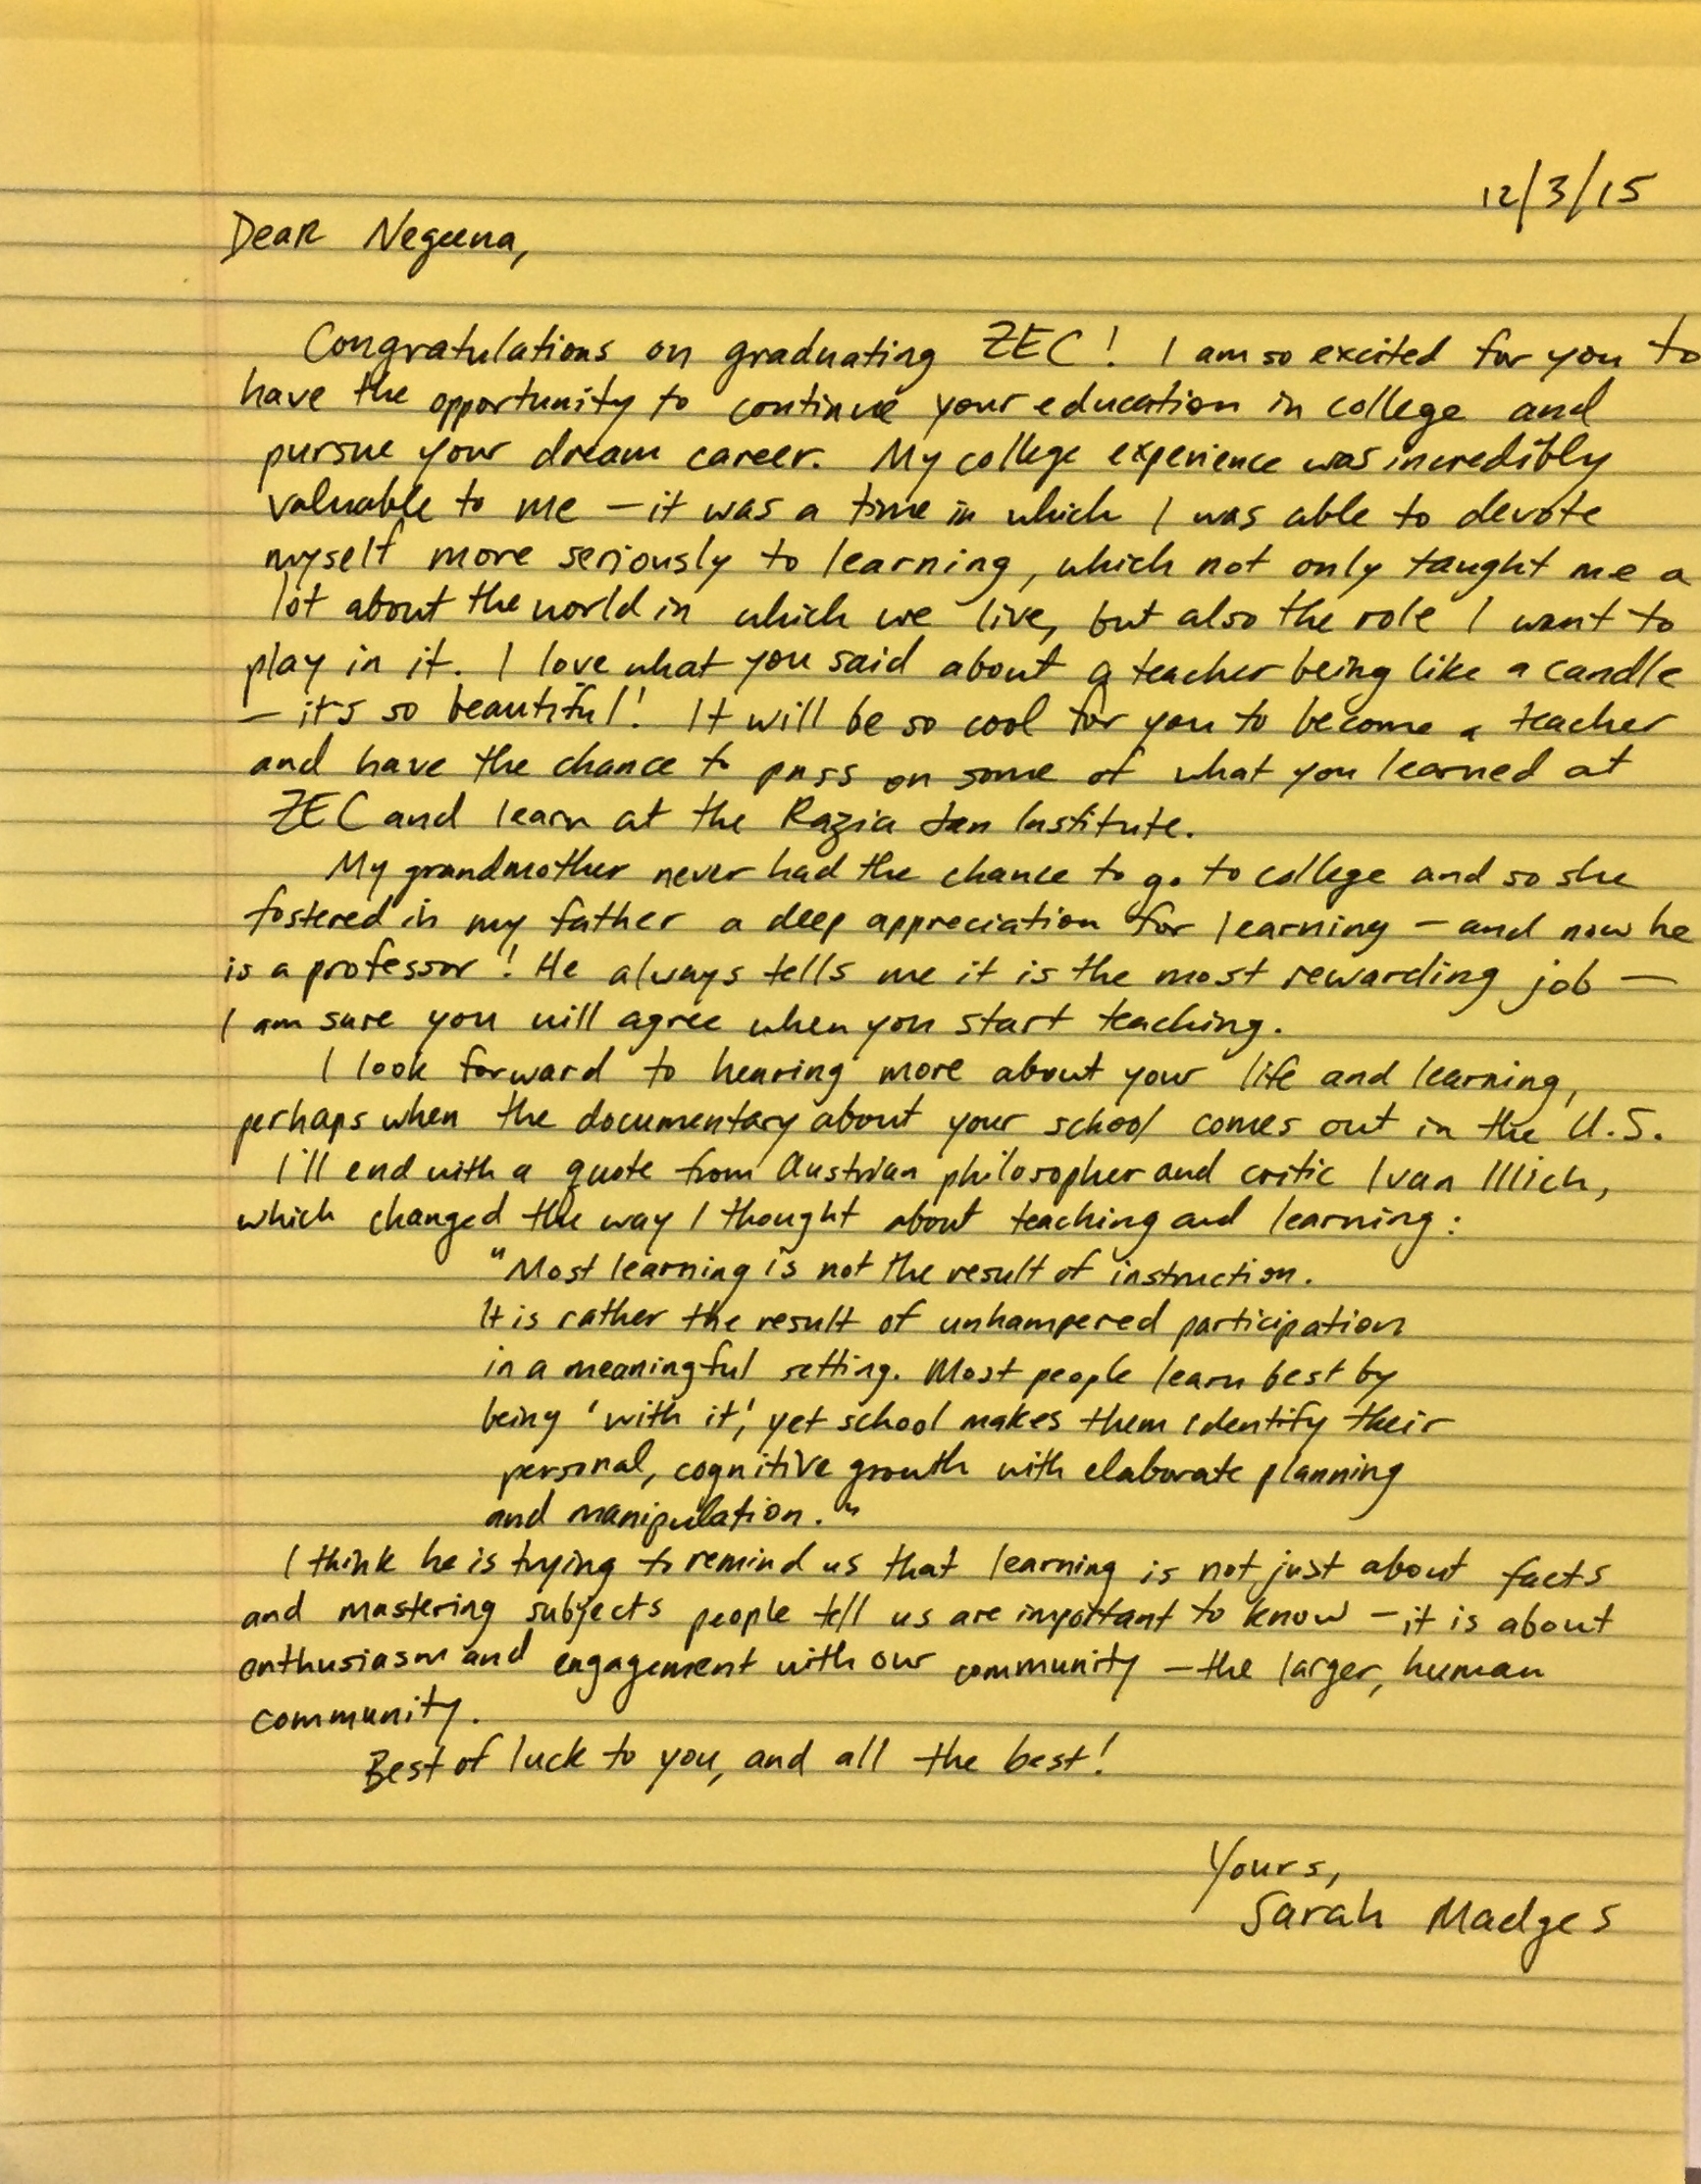 12/3/15
Dear Negeena,
Congratulations on graduating ZEC! I am so excited for you to
have the opportunity to continue your education in college and
pursue your dream career. My college experience was incredibly
valuable to me – it was a time in which I was able to devote
myself more seriously to learning, which not only taught me a
lot about the world in which we live, but also the role I want to
play in it. I love what you said about a teacher being like a candle
– it's so beautiful! It will be so cool for you to become a teacher
and have the chance to pass on some of what you learned at
ZEC and learn at the Razia Jan Institute.
My grandmother never had the chance to go to college and so she
fostered in my father a deep appreciation for learning – and now he
is a professor! He always tells me it is the most rewarding job –
I am sure you will agree when you start teaching.
I look forward to hearing more about your life and learning,
perhaps when the documentary about your school comes out in the U.S.
I'll end with a quote from Austrian philosopher and critic Ivan Illich,
which changed the way I thought about teaching and learning:
"Most learning is not the result of instruction.
It is rather the result of unhampered participation
in a meaningful setting. Most people learn best by
being 'with it,' yet school makes them identify their
personal, cognitive growth with elaborate planning
and manipulation."
I think he is trying to remind us that learning is not just about facts
and mastering subjects people tell us are important to know – it is about
enthusiasm and engagement with our community – the larger, human
community.
Best of luck to you, and all the best!
Yours,
Sarah Madges